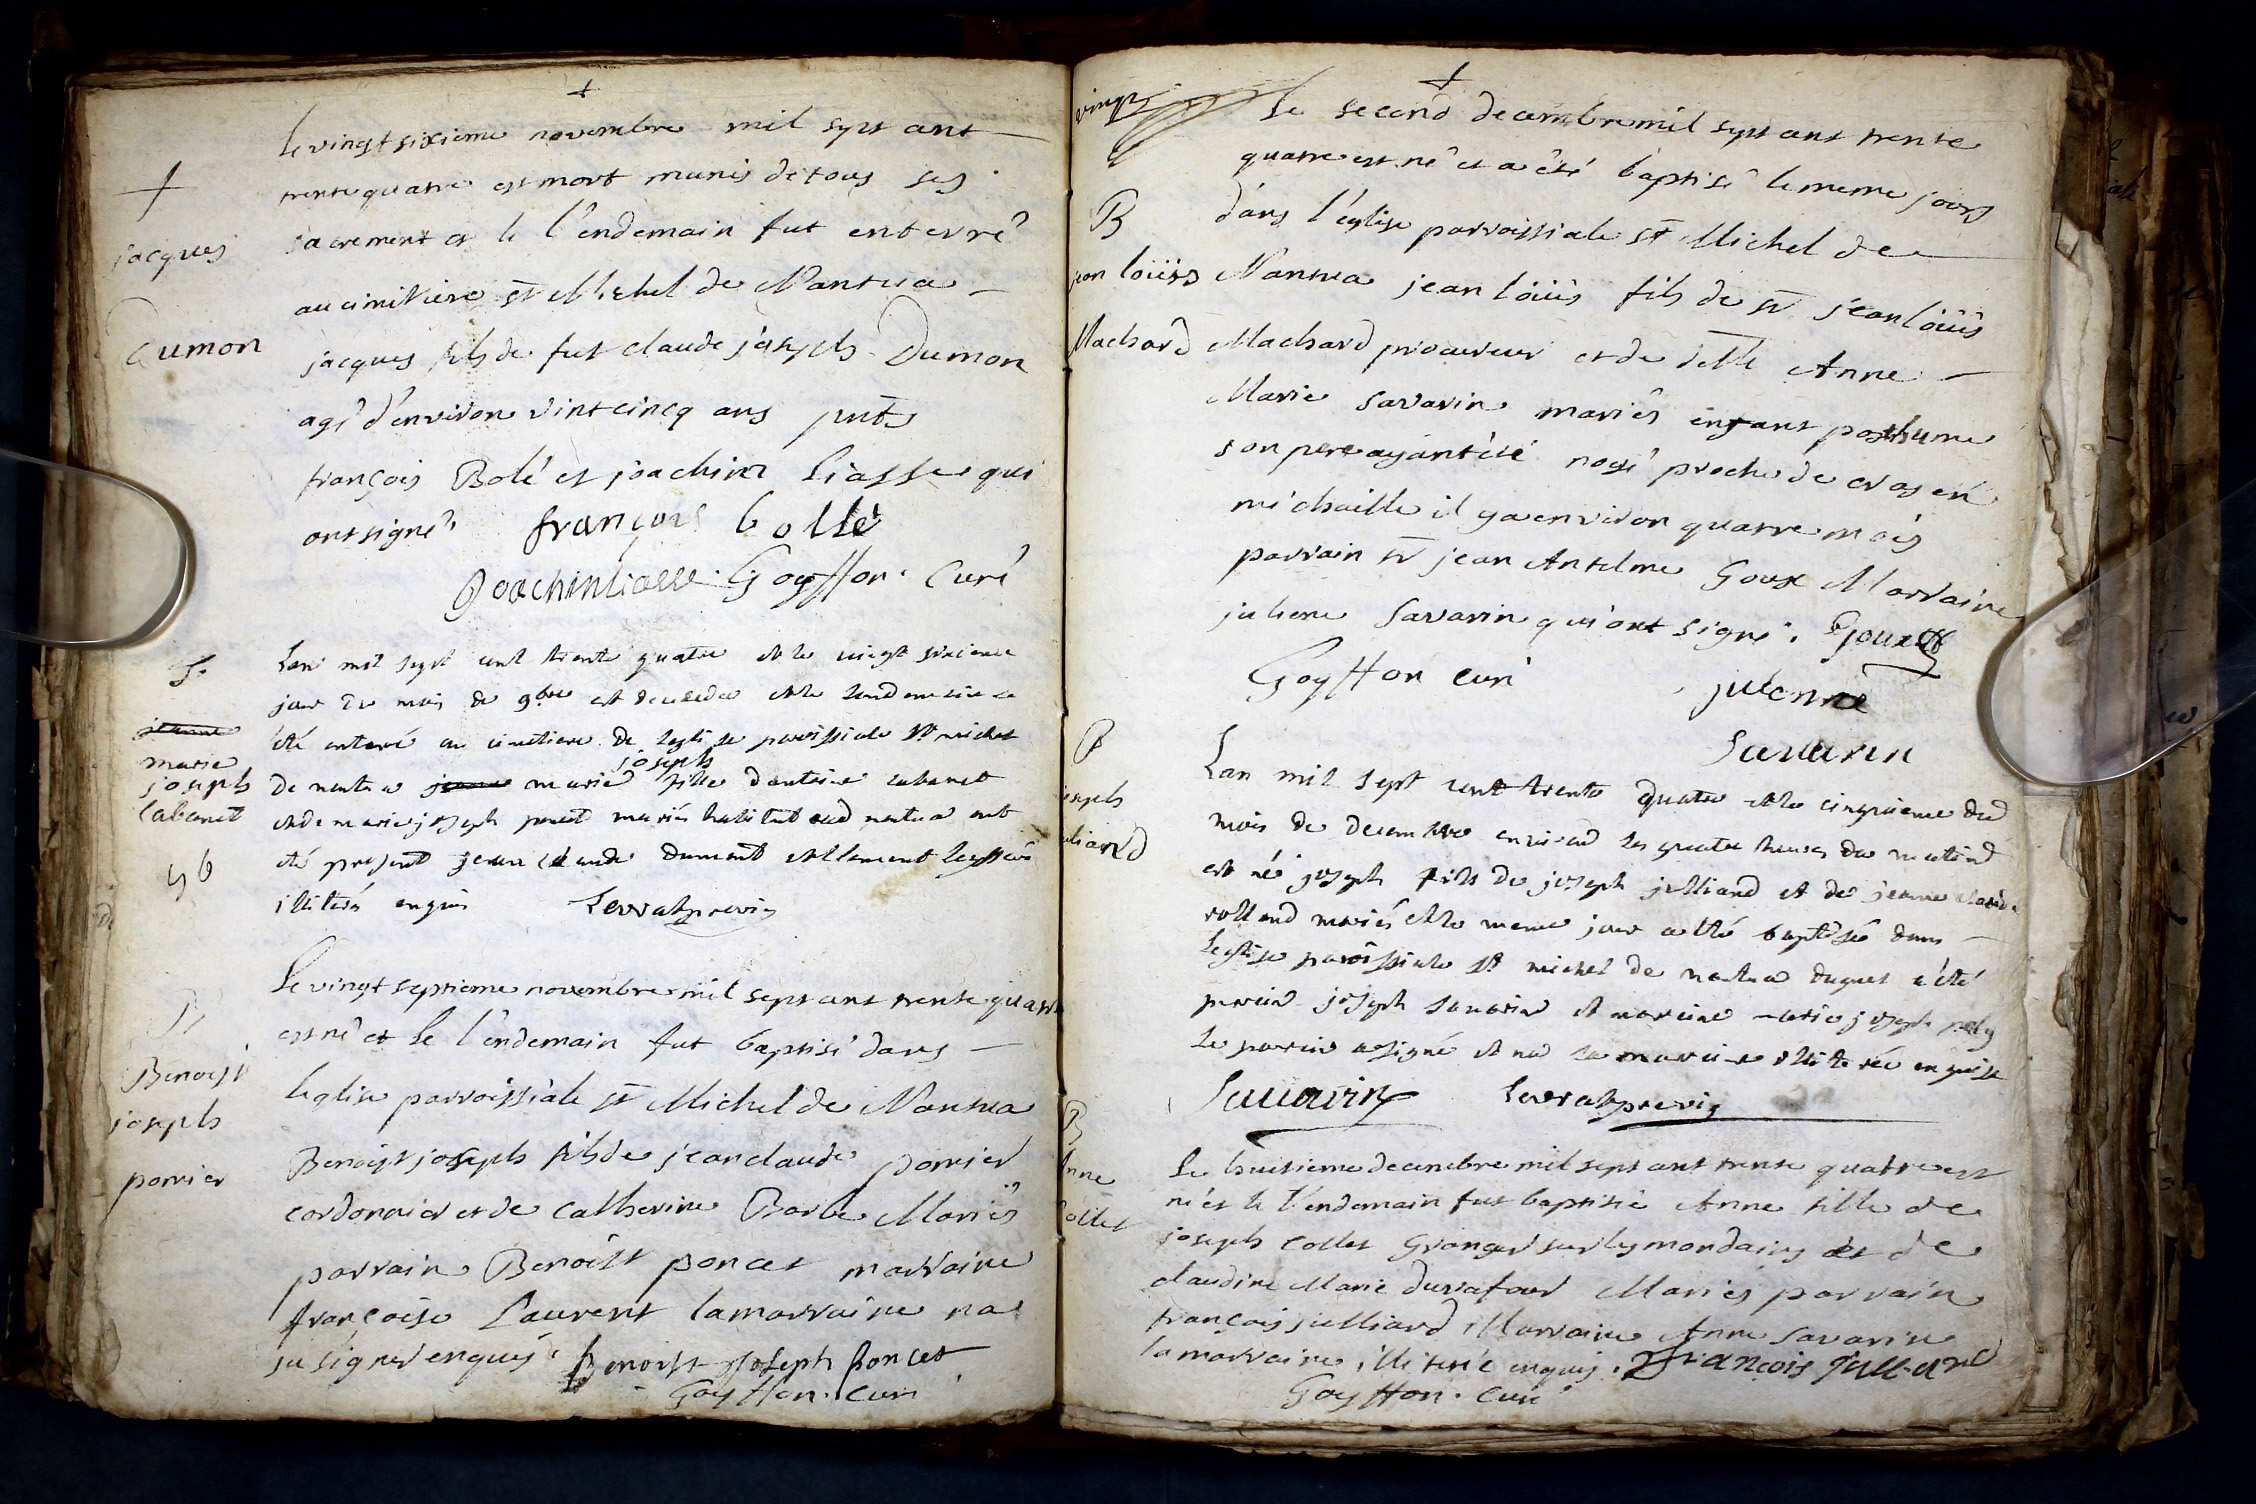 +
le vingt sixieme novembre mil sept cent
trente quatre est mort munis de tous ses
sacrement et le l'endemain fut enterré
au cimitiere st Michel de Nantua
jacques fils de fut claude joseph Dumon
agé d'environ vint cinq ans pnts
françois Bolé et joachim Liasse qui
ont signé. françois bollé
Joachin liasse Goyffon. Curé
+
jacques
Dumon
Lan mil sept cent trente quatre et le vingt sixieme
jour du mois de 9bre est decedée et le lendemain a
été enteré au cimetiere de leglise paroissiale St michel
joseph
de nantua jeanne marie fille dantoine cabanet
et de marie joseph mariés habitant aud nantua ont
été present jean claude dumont et
illiterés enquis Serrat previs
S.
jeanne
marie
joseph
Cabanet
Le vingt septieme novembre mil sept cent trente quatre
est né et le l'endemain fut baptisé dans
leglise parroissiale st Michel de Nantua
Benoist joseph fils de jean claude porrier
cordonnier et de Catherine Barbe Mariés
parrain Benoist poncet marraine
françoise Laurent la marraine na
su signer enquis. Benoist Joseph poncet
Goyffon. Curé
B
Benoist
joseph
porrier
vingt
+
Le second decembre mil sept cent trente
quatre est né et a été baptisé le meme jours
dans l'eglise parroissiale st Michel de
Nantua jean loüis fils de sr jean loüis
Machard procureur et de delle Anne
Marie Savarin mariés enfant posthume
son pere ayant été noyé proche de cras en
michaille il ya environ quatre mois
parrain sr jean Antelme Goux Marraine
juliene Savarin qui ont signé. Goux
Goyffon curé julenne
Savarin
B
jean loüiss
Machard
Lan mil sept cent trente quatre et le cinquieme du
mois de decembre environ les quatre heures du matin
est né joseph fils de joseph julliand et de jeanne
rolland mariés et le meme jour a été baptisé dans
leglise paroissiale St michel de nantua duquel a été
parain joseph savarin et maraine marie joseph
le parain a signé et non la maraine illiterée enquise
Sauarin Serrat previs
B
joseph
Le huitieme decembre mil sept cent trente quatre est
né et le l'endemain fut baptisée Anne fille de
joseph collet Granger sur les mondains et de
claudine Marie durrafour Mariés parrain
françois julliard Marraine Anne Savarin
la marraine illiterée enquis. françois julliard
Goyffon. Curé
B
Anne
Collet